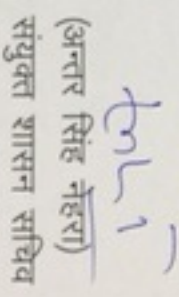 (अन्तर सिंह नेहरा)
संयुक्त शासन सचिव